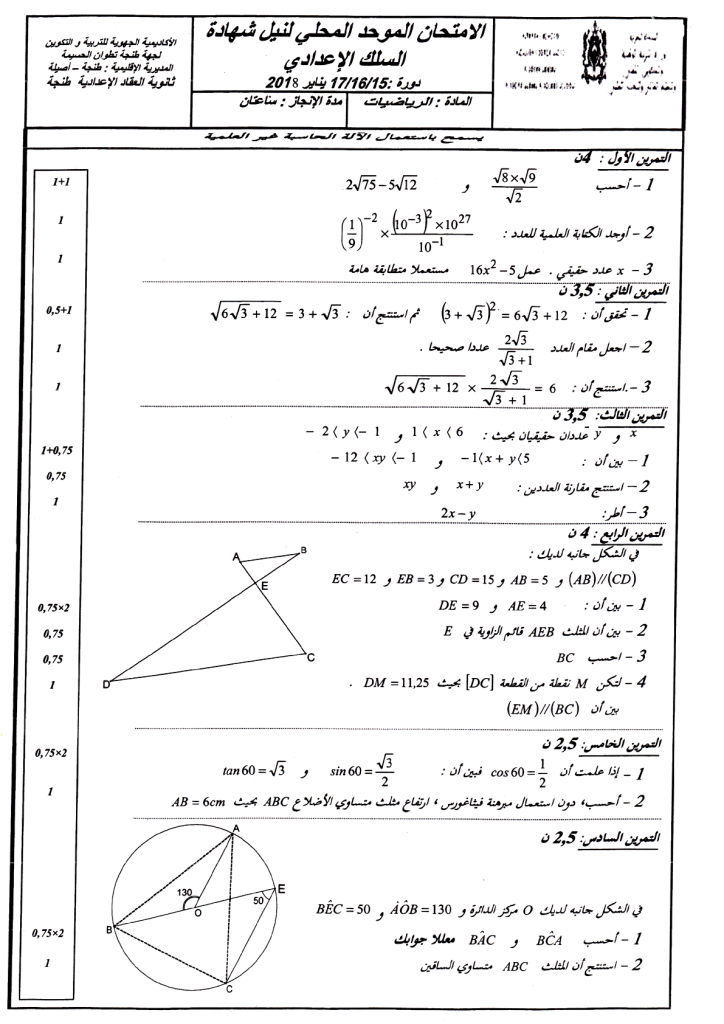 الأكاديمية الجهوية للتربية و التكوين
لجهة طنجة تطوان الحسيمة
المديرية الإقليمية : طنجة – أصيلة
ثانوية العقاد الإعدادية طنجة
الامتحان الموحد المحلي لنيل شهادة
السلك الإعدادي
دورة :17/16/15 يناير 2018
المادة : الرياضيات مدة الإنجاز : ساعتان
يسمح باستعمال الآلة الحاسبة غير العلمية
التمرين الأول : 4ن
1 – أحسب \frac{\sqrt{8}×\sqrt{9}}{\sqrt{2}} و 2\sqrt{75}−5\sqrt{12}
1+1
2 – أوجد الكتابة العلمية للعدد : \left(\frac{1}{9}\right)^{-2}×\frac{(10^{-3})^2×10^{27}}{10^{-1}}
1
3 – x عدد حقيقي . عمل 16x²−5 مستعملا متطابقة هامة
1
التمرين الثاني : 3,5 ن
1 – تحقق أن : (3+√3)² = 6√3+12 ثم استنتج أن : \sqrt{6√3+12} = 3+√3
0,5+1
2 – اجعل مقام العدد \frac{2√3}{√3+1} عددا صحيحا .
1
3 – .استنتج أن : \sqrt{6√3+12} × \frac{2√3}{\sqrt{3}+1} = 6
1
التمرين الثالث: 3,5 ن
x و y عددان حقيقيان بحيث : 1⟨x⟨6 و −2⟨y⟨−1
1 – بين أن : −1⟨x+y⟨5 و −12⟨xy⟨−1
1+0,75
2 – استنتج مقارنة العددين : x+y و xy
0,75
3 – أطر: 2x−y
1
التمرين الرابع : 4 ن
في الشكل جانبه لديك :
(AB)//(CD) و AB=5 و CD=15 و EB=3 و EC=12
1 – بين أن : AE=4 و DE=9
0,75×2
2 – بين أن المثلث AEB قائم الزاوية في E
0,75
3 – احسب BC
0,75
4 – لتكن M نقطة من القطعة [DC] بحيث DM=11,25 .
1
بين أن (EM)//(BC)
A
B
E
C
D
التمرين الخامس: 2,5 ن
1 – إذا علمت أن cos60=\frac{1}{2} فبين أن : sin60=\frac{√3}{2} و tan60=√3
0,75×2
2 – أحسب، دون استعمال مبرهنة فيثاغورس ، ارتفاع مثلث متساوي الأضلاع ABC بحيث AB=6cm
1
التمرين السادس: 2,5 ن
في الشكل جانبه لديك O مركز الدائرة و AÔB=130 و BÊC=50
1 – أحسب BĈA و BÂC معللا جوابك
0,75×2
2 – استنتج أن المثلث ABC متساوي الساقين
1
A
E
130
50
O
B
C